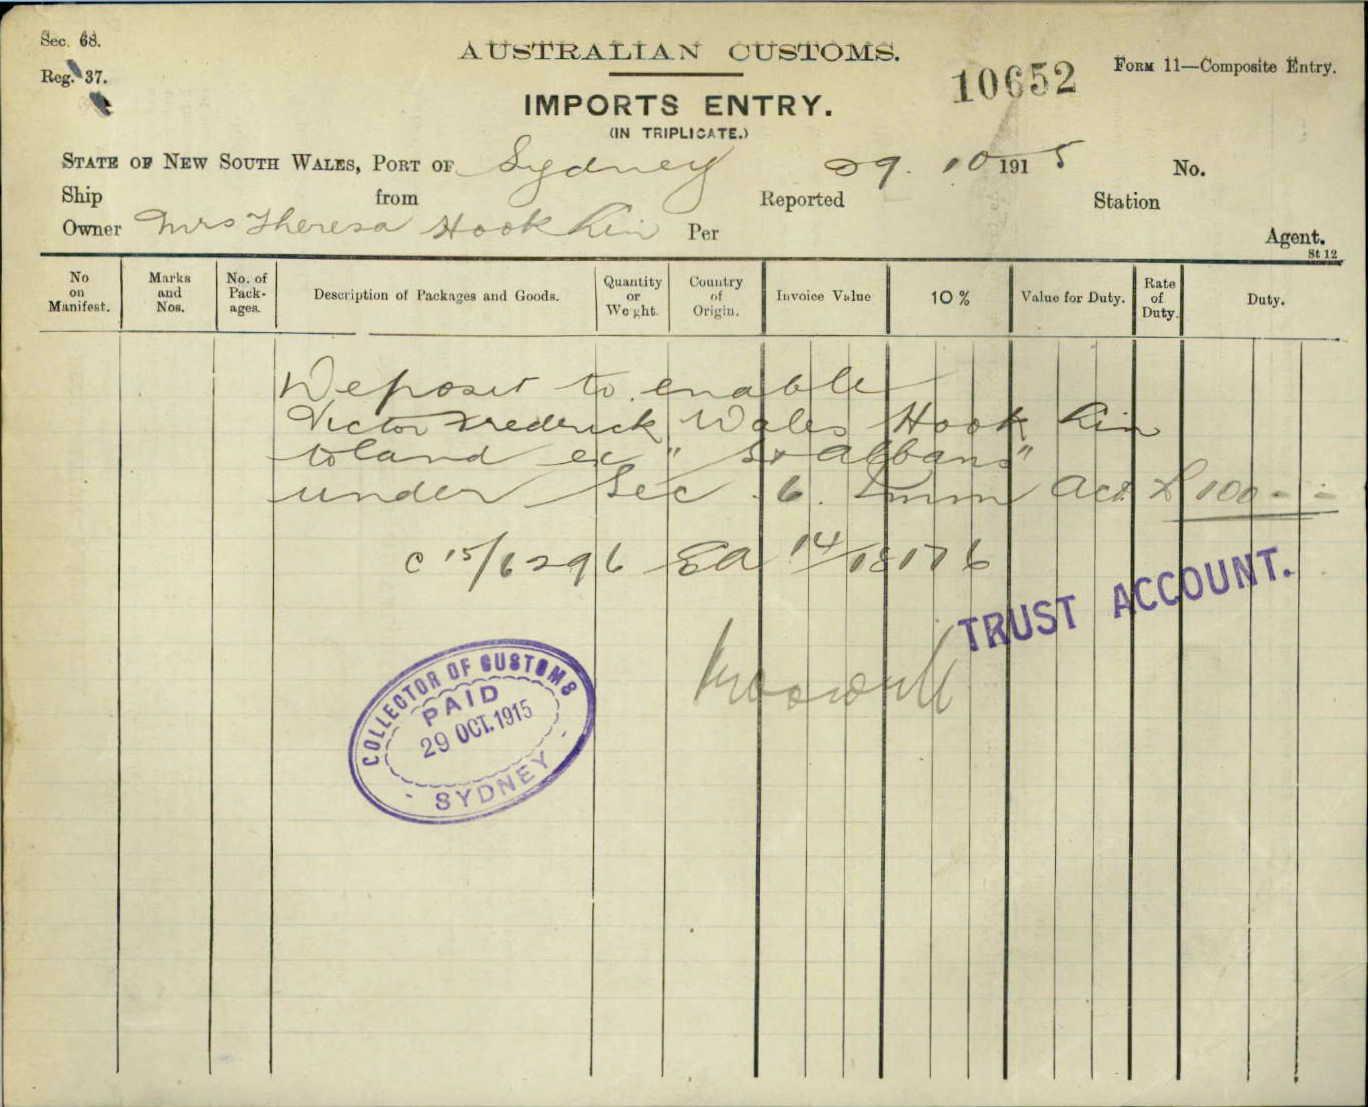 Sec. 68.
Reg. 37.
AUSTRALIAN CUSTOMS.
10652
Form 11—Composite Entry.
IMPORTS ENTRY.
(IN TRIPLICATE.)
State of New South Wales, Port of Sydney 29. 10 1915 No.
Ship from Reported Station
Owner Mrs Theresa Hook Kin Per Agent.
St 12
No on Manifest. Marks and Nos. No. of Pack-ages. Description of Packages and Goods. Quantity or Weight. Country of Origin. Invoice Value 10 % Value for Duty. Rate of Duty. Duty.
Deposit to enable
Victor Frederick Wales Hook Kin
to land ex "St Albans"
under Sec. 6. Imm Act £100 - -
C 15/6296 EA 14/18176
TRUST ACCOUNT.
COLLECTOR OF CUSTOMS
PAID
29 OCT. 1915
- SYDNEY -